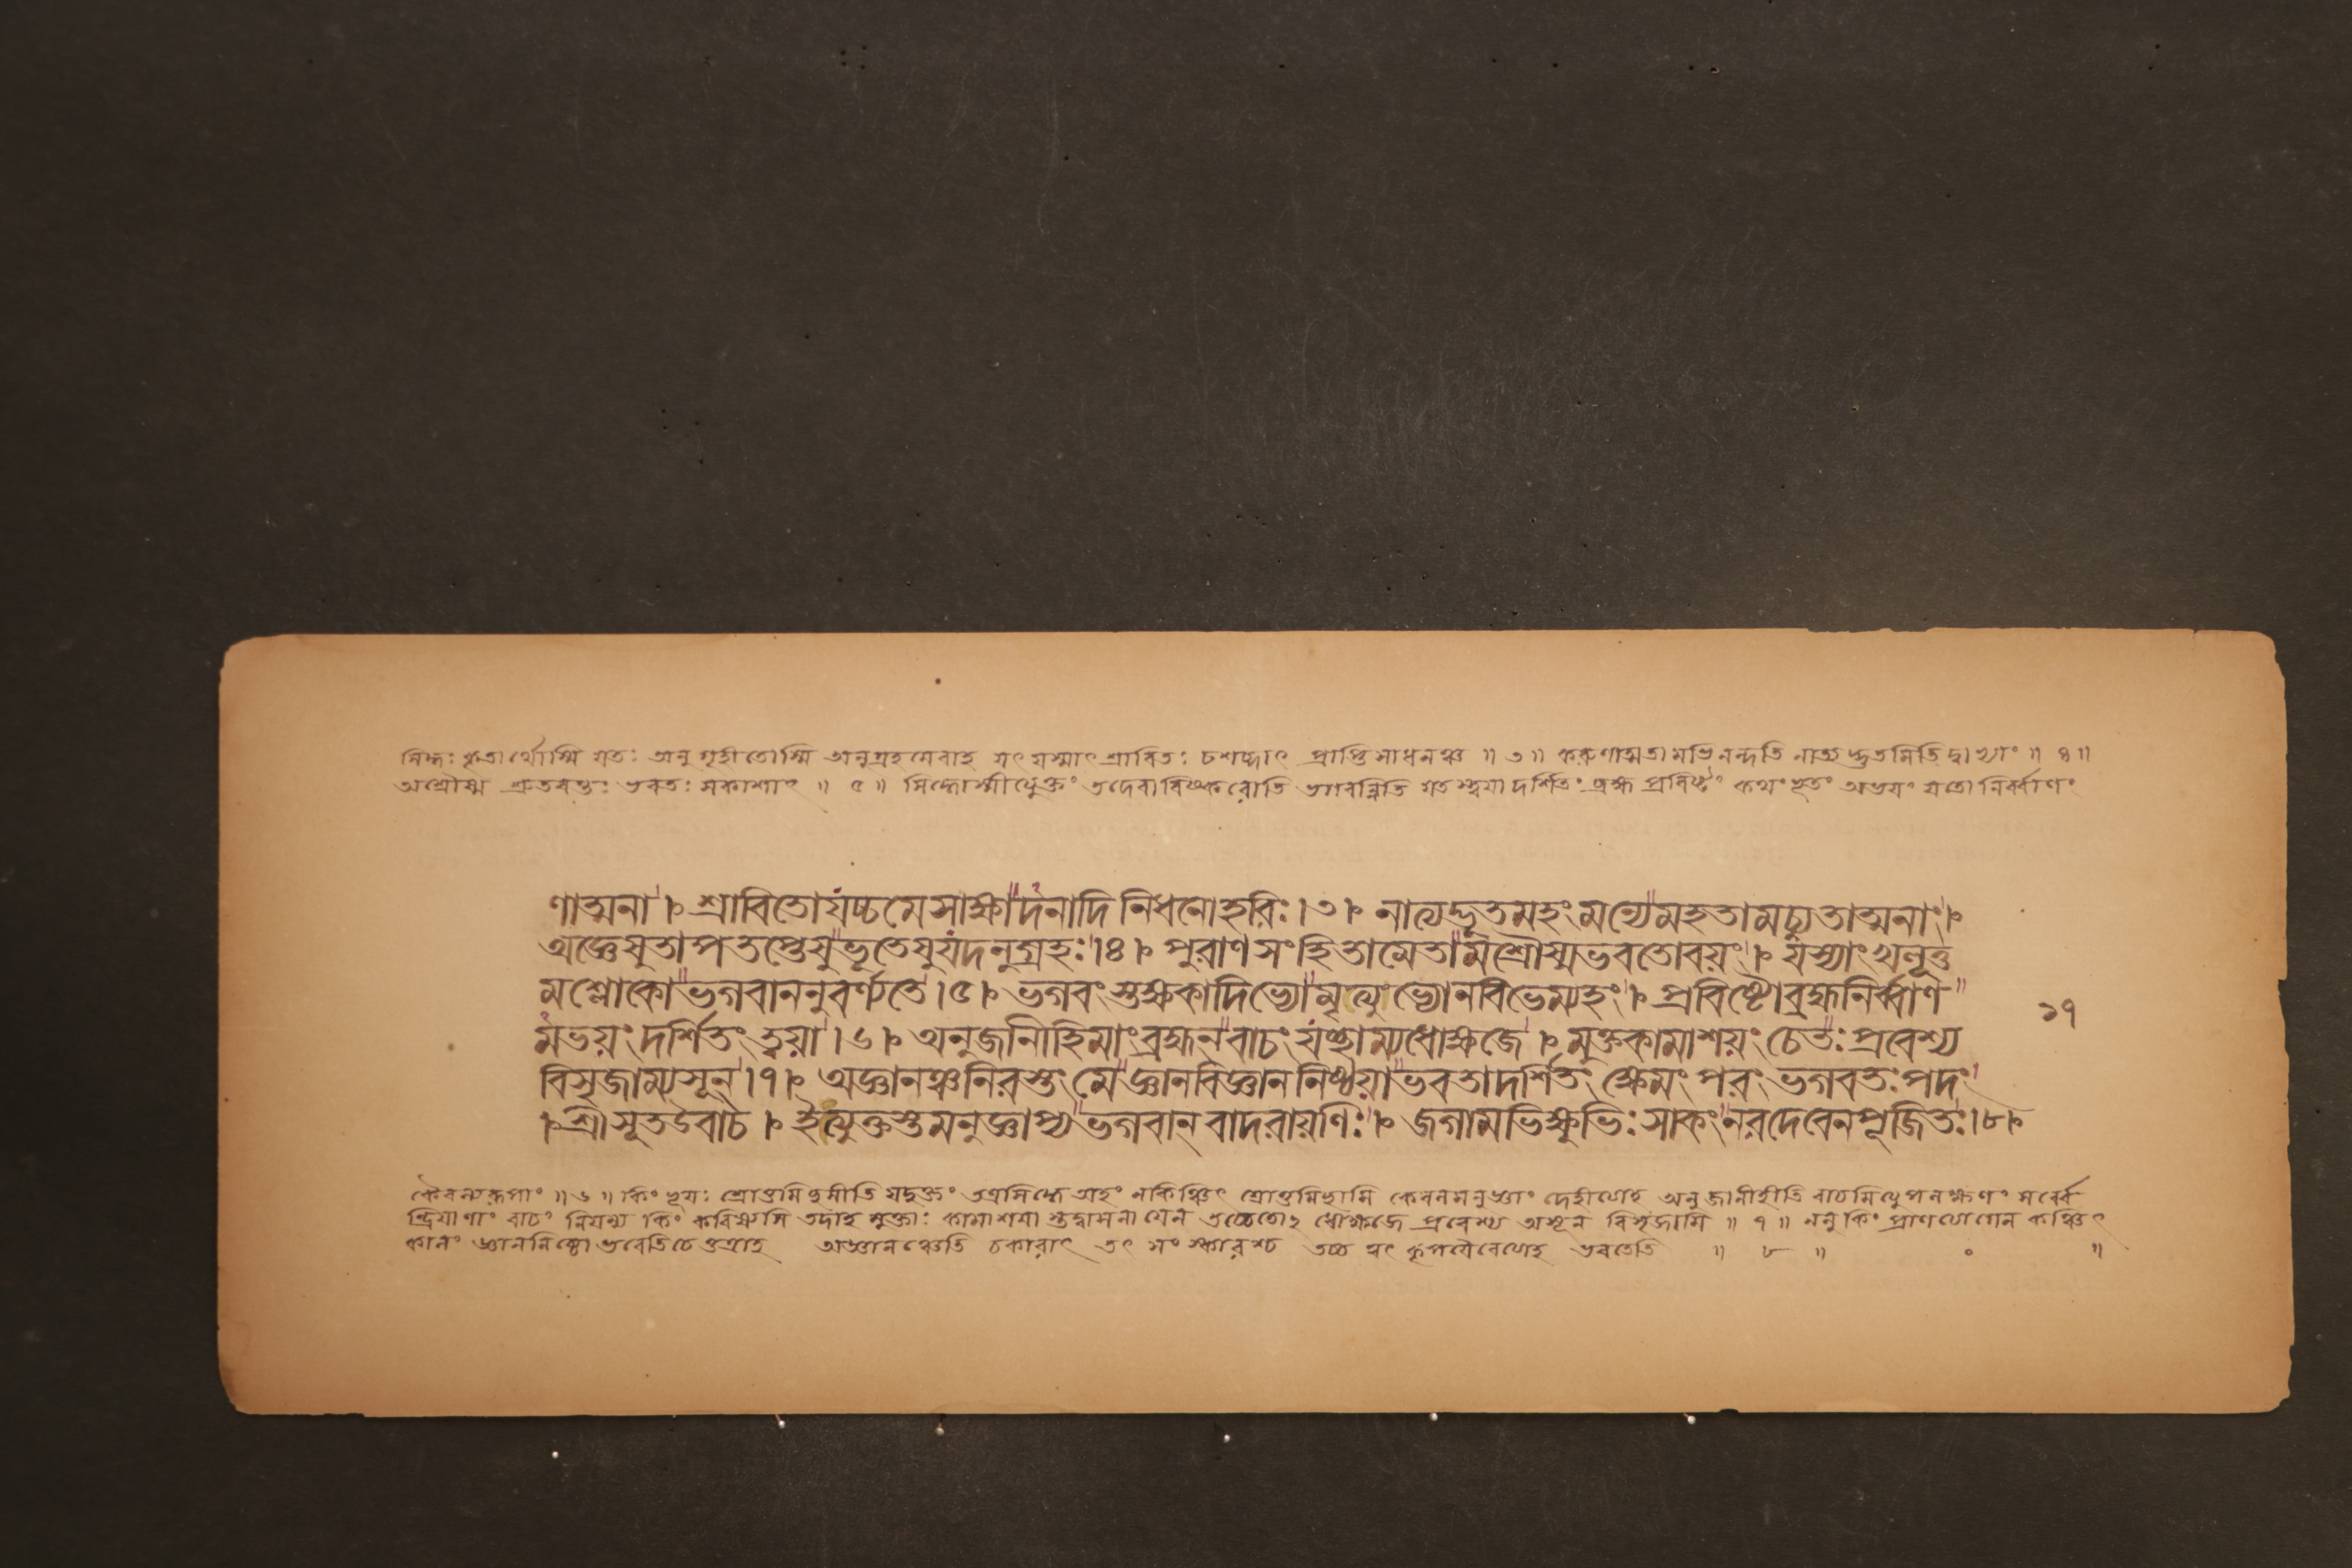 সিদ্ধঃ কৃতার্থোস্মি যতঃ অনুগৃহীতোস্মি অনুগ্রহমেবাহ যৎ যস্মাৎ শ্রাবিতঃ চশব্দাৎ প্রাপ্তিসাধনঞ্চ ॥ ৩ ॥ করুণাত্মতামভিনন্দতি নাত্যদ্ভুতমিতি দ্বাভ্যাং ॥ ৪ ॥
অশ্রৌষ্ম শ্রুতবন্তঃ ভবতঃ সকাশাৎ ॥ ৫ ॥ সিদ্ধোস্মীত্যুক্তং তদেবাবিষ্করোতি ভগবন্নিতি যতস্ত্বয়া দর্শিতং ব্রহ্ম প্রবিষ্টঃ কথংভূতং অভয়ং যতো নির্ব্বাণং
ণাত্মনা । শ্রাবিতোযচ্চমেসাক্ষাদনাদিনিধনোহরিঃ ।৩। নাত্যদ্ভুতমহংমন্যেমহতামচ্যুতাত্মনাং ।
অজ্ঞেষুতাপতপ্তেষুভূতেষুযদনুগ্রহঃ ।৪। পুরাণসংহিতামেতামশ্রৌষ্মভবতোবয়ং । যস্যাংখলূত্ত
মশ্লোকোভগবাননুবর্ণ্যতে ।৫। ভগবংস্তক্ষকাদিভ্যোমৃত্যুভ্যোনবিভেম্যহং । প্রবিষ্টোব্রহ্মনির্ব্বাণ
মভয়ং দর্শিতং ত্বয়া ।৬। অনুজানীহিমাংব্রহ্মনবাচংযচ্ছাম্যধোক্ষজে । মুক্তকামাশয়ংচেতঃপ্রবেশ্য
বিসৃজাম্যসূন্ ।৭। অজ্ঞানঞ্চনিরস্তং মেজ্ঞানবিজ্ঞাননিষ্ঠয়াভবতাদর্শিতং ক্ষেমং পরং ভগবতঃপদং
। শ্রীসূতউবাচ । ইত্যুক্তস্তমনুজ্ঞাপ্যভগবানবাদরায়ণিঃ । জগামভিক্ষুভিঃসাকংনরদেবেনপূজিতঃ ।৮।
১৭
কৈবল্যরূপং ॥ ৬ ॥ কিং ভূয়ঃ শ্রোতুমিচ্ছসীতি যদুক্তং তত্রসিদ্ধে অহং নকিঞ্চিৎ শ্রোতুমিচ্ছামি কেবলমনুজ্ঞাং দেহীত্যাহ অনুজানীহীতি বাচমিত্যুপলক্ষণং সর্ব্বে
ন্দ্রিয়াণাং বাচং নিয়ম্য কিং করিষ্যসি তদাহ মুক্তাঃ কামাশয়াস্তদ্বাসনা যেন তচ্চেতোঽধোক্ষজে প্রবেশ্য অসূন বিসৃজামি ॥ ৭ ॥ ননু কিং প্রাণত্যাগেন কঞ্চিৎ
কালং জ্ঞাননিষ্ঠো ভবেতিচেত্তত্রাহ অজ্ঞানঞ্চেতি চকারাৎ তৎ সংস্কারশ্চ তচ্চ ত্বৎ কৃপয়ৈবেত্যাহ ভবতেতি ॥ ৮ ॥ ০ ॥